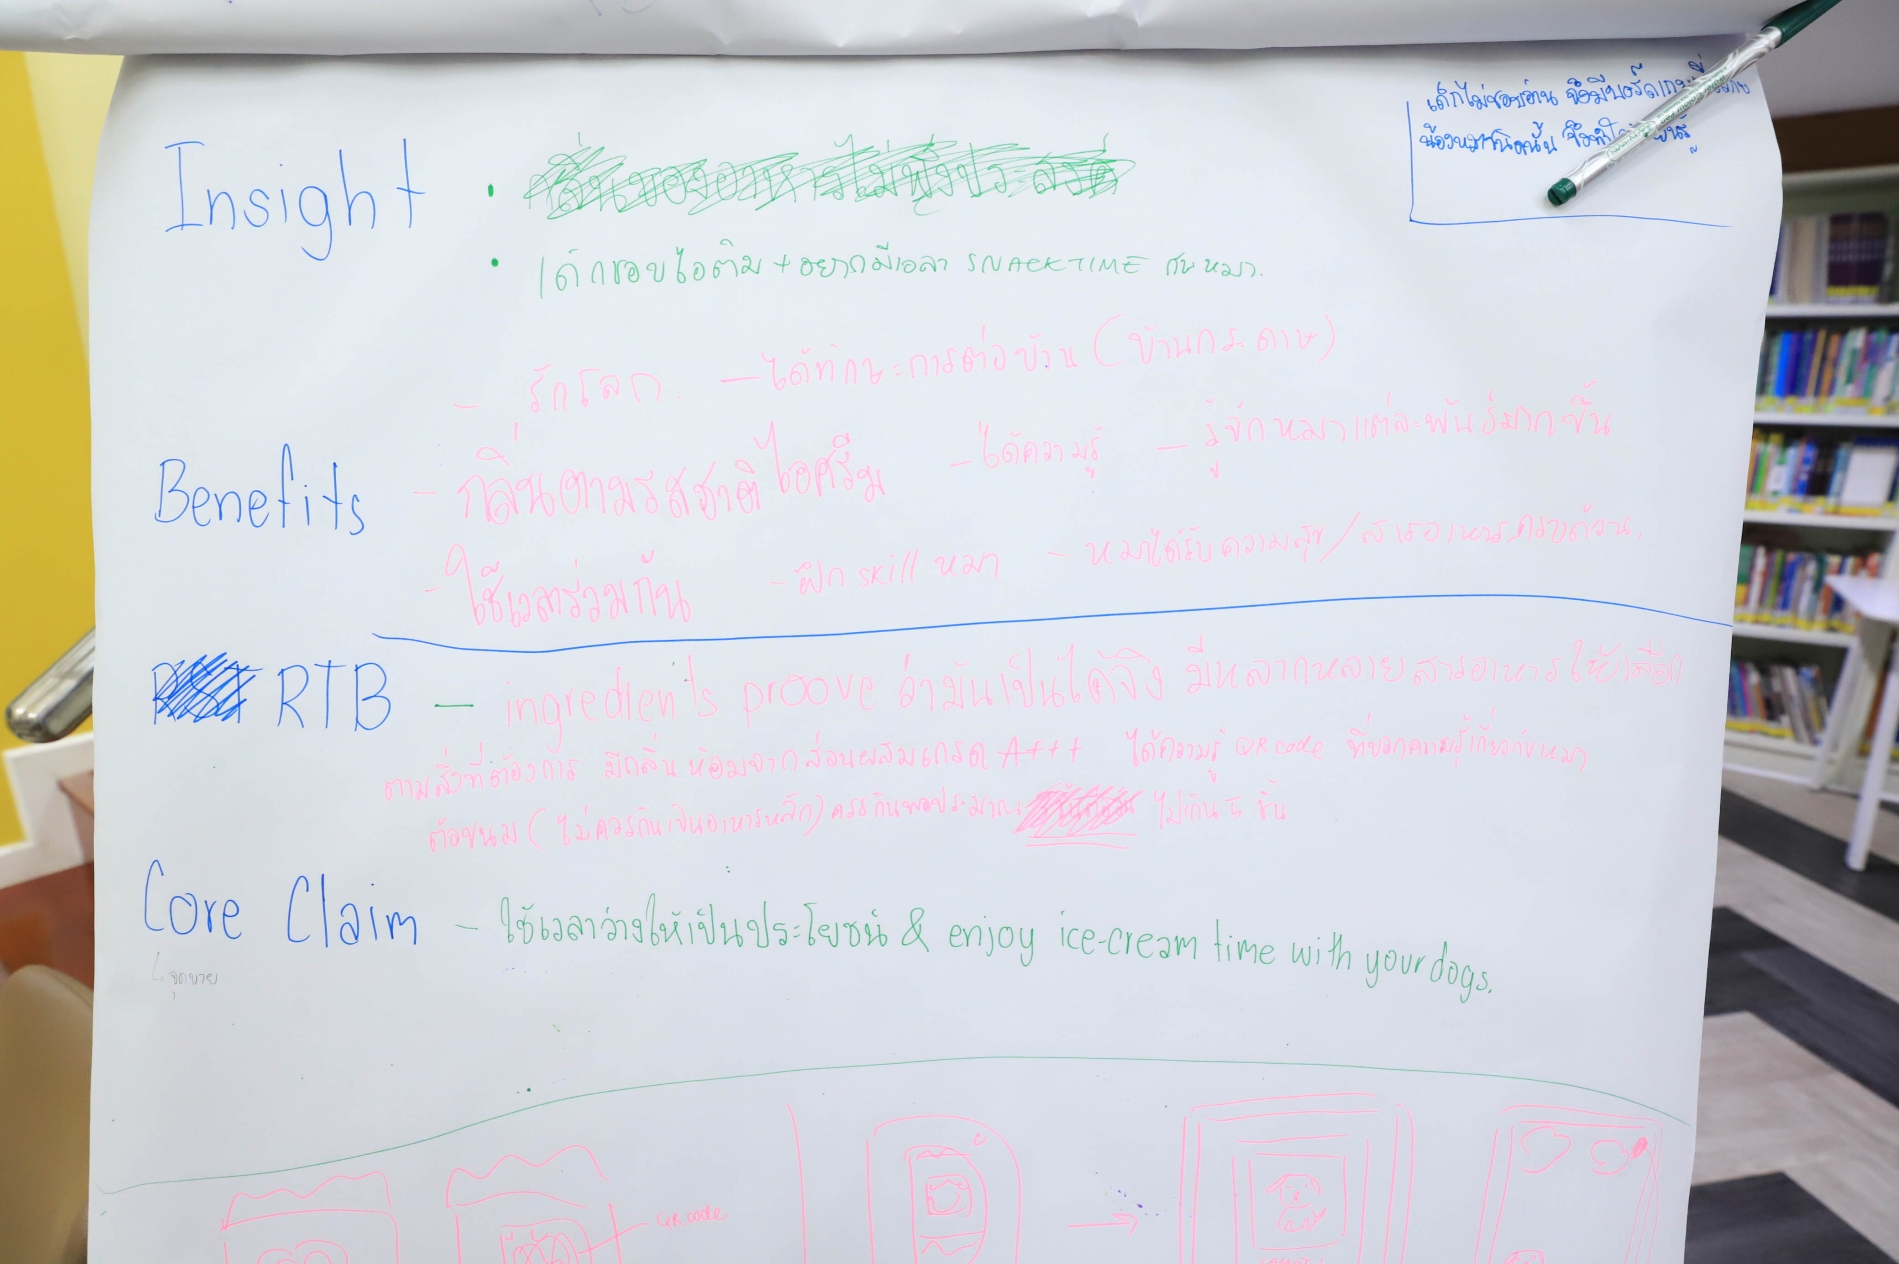 เด็กไม่ชอบอ่าน จึงมีบอร์ดเกม
น้องหมาชนิดนั้น จึงทำ
Insight
• กลิ่นของอาหารไม่พึงประสงค์
• เด็กชอบไอติม + อยากมีเวลา SNACK TIME กับหมา.
- รักโลก. - ได้ทักษะการต่อบ้าน (บ้านกระดาษ)
Benefits - กลิ่นตามรสชาติไอศรีม - ได้ความรู้ - รู้จักหมาแต่ละพันธ์มากขึ้น
- ใช้เวลาร่วมกัน - ฝึก skill หมา - หมาได้รับความสุข/สารอาหารครบถ้วน.
RTB - ingredien'ts proove ว่ามันเป็นได้จริง มีหลากหลายสารอาหารให้เลือก
ตามสิ่งที่ต้องการ มีกลิ่นหอมจากส่วนผสมเกรด A+++ ได้ความรู้ QR code ที่บอกความรู้เกี่ยวกับหมา
ต่อขนม (ไม่ควรกินเป็นอาหารหลัก) ควรกินพอประมาณ ไม่เกิน 5 ชิ้น
Core Claim - ใช้เวลาว่างให้เป็นประโยชน์ & enjoy ice-cream time with your dogs.
จุดขาย
QR code